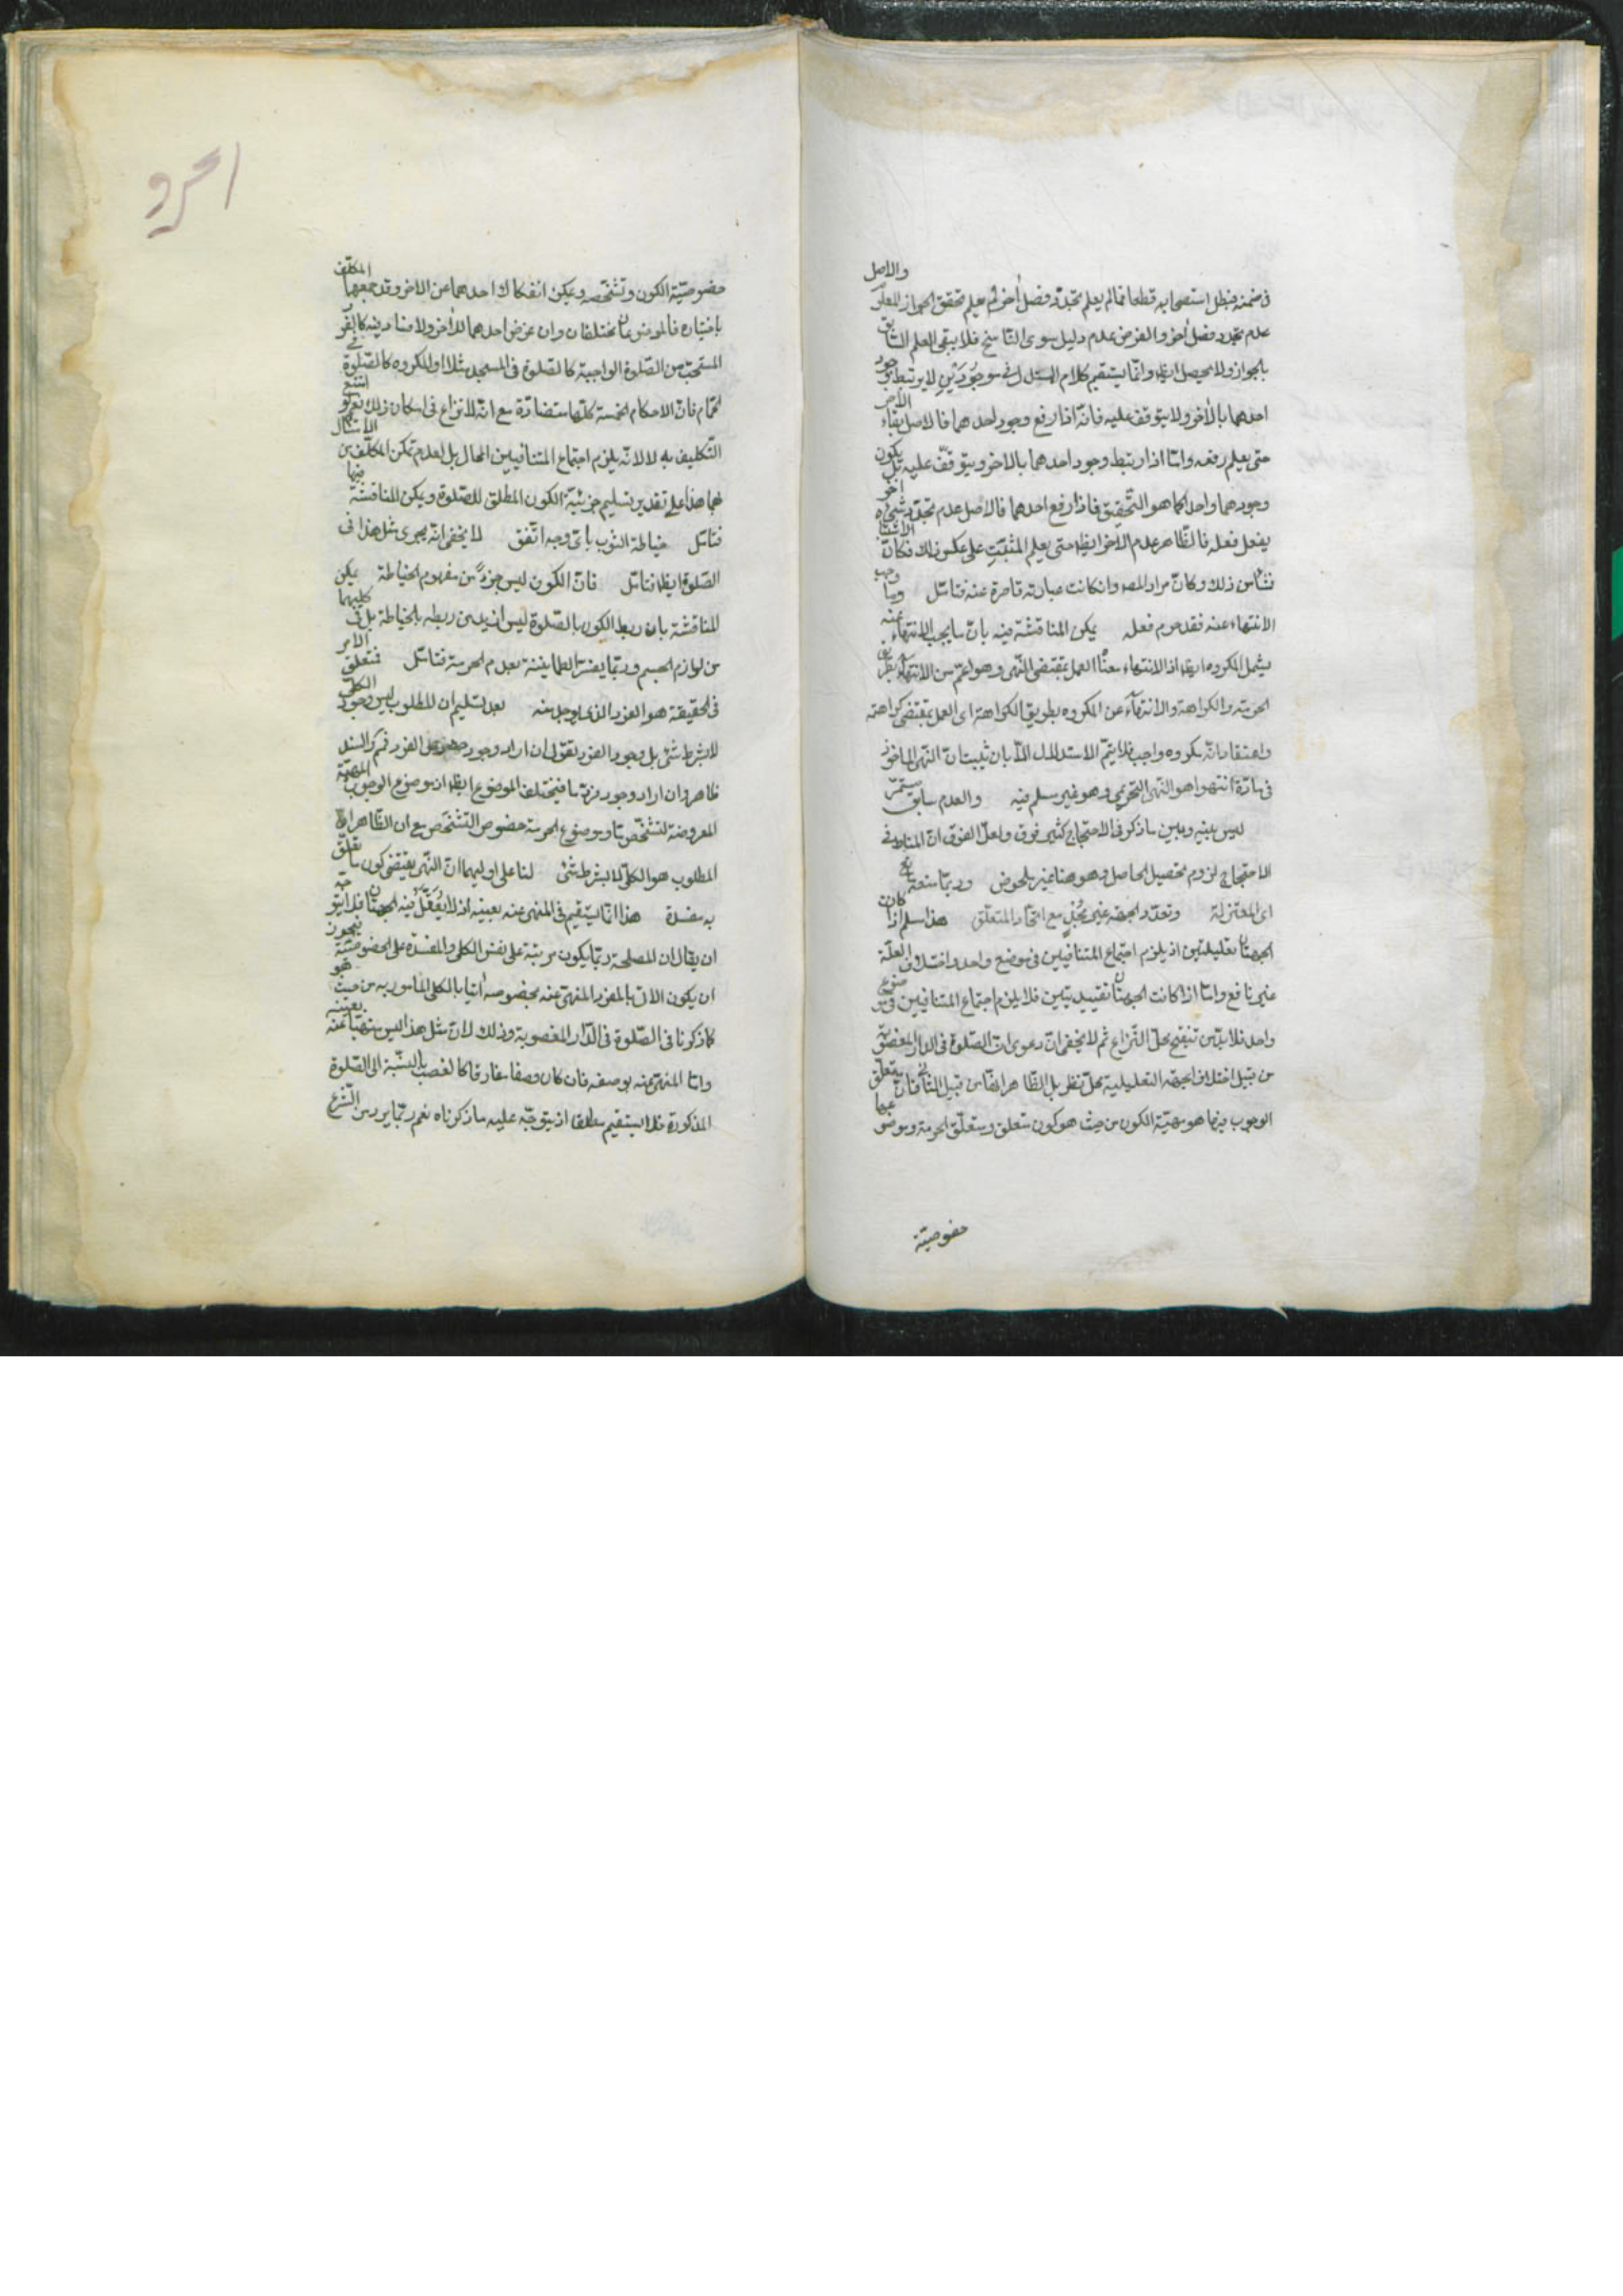 في ضمنه فبطل استصحابه قطعا فما لم يعلم تجدد فصل آخر لم يعلم تحقق الجواز المعلوم والاصل
عدم تجدد فصل آخر والفرض عدم دليل سوى الناسخ فلا يبقى العلم السابق
بالجواز ولا يحصل ايضا وانما يستقيم كلام المستدل في موجودين لا يرتبط وجود
احدهما بالآخر ولا يتوقف عليه فانه اذا رفع وجود احدهما فالاصل بقاء الآخر
حتى يعلم رفعه واما اذا ارتبط وجود احدهما بالآخر ويتوقف عليه بل يكون
وجودهما واحدا كما هو التحقيق فاذا رفع احدهما فالاصل عدم تجدد شيء آخر
يفعل فعله فالظاهر عدم الآخر ايضا حتى يعلم المثبت على عكس ذلك فكان الاشتباه
نشأ من ذلك وكان مراد المص وان كانت عبارته قاصرة عنه فتامل وما وجب
الانتهاء عنه فقد حرم فعله يمكن المناقشة فيه بان ما يجب الانتهاء عنه
يشمل المكروه ايضا اذ الانتهاء معناه العمل بمقتضى النهي وهو اعم من الانتهاء بطريق
الحرمة والكراهة والانتهاء عن المكروه بطريق الكراهة اي العمل بمقتضى كراهته
واعتقاد انه مكروه واجب فلا يتم الاستدلال الا بان يثبت ان النهي الماخوذ
في مادة انتهوا هو النهي التحريمي وهو غير مسلم فيه والعدم سابق مستمر
ليس بينه وبين ما ذكر في الاحتجاج كثير فرق ولعل الفرق ان المناط في
الاحتجاج لزوم تحصيل الحاصل وهو هنا
اى المعتزلة وتعدد الجهة غير مجد مع اتحاد المتعلق هذا مسلم اذا كان
الجهتان تعليليتين اذ يلزم اجتماع المتنافيين في موضع واحد واختلاف العلة
غير نافع واما اذا كانت الجهتان تقييديتين فلا يلزم اجتماع المتنافيين في موضوع
واحد فلا بد من تنقيح محل النزاع ثم لا يخفى ان دعوى ان الصلوة في الدار المغصوبة
من قبيل اختلاف الجهة التعليلية محل نظر بل الظاهر انها من قبيل الثاني فان متعلق
الوجوب فيها هو مهية الكون من حيث هو كون متعلق ومتعلق الحرمة وموضوعها
خصوصية
خصوصية الكون وتشخصه ويمكن انفكاك احدهما عن الآخر وقد جمعهما المكلف
باختياره فالموضوعان مختلفان وان عرض احدهما للآخر ولا منافاة فيه كالفرد
المستحب من الصلوة الواجبة كالصلوة في المسجد مثلا او المكروه كالصلوة في
الحمام فان الاحكام الخمسة كلها متضادة مع انه لا نزاع في امكان ذلك نعم لو امتنع
التكليف به لا لانه يلزم اجتماع المتنافيين المحال بل لعدم تمكن المكلف من الامتثال
بهما هذا على تقدير تسليم جزئية الكون المطلق للصلوة ويمكن المناقشة فيها
فتامل خياطة الثوب باى وجه اتفق لا يخفى انه يجرى مثل هذا في
الصلوة ايضا فتامل فان الكون ليس جزءً من مفهوم الخياطة يمكن
المناقشة بان ربط الكون بالصلوة ليس ازيد من ربطه بالخياطة بل في كليهما
من لوازم الجسم وربما يفسر الطمانينة بعدم الحركة فتامل فمتعلق الامر
في الحقيقة هو الفرد الذي يوجد منه بعد تسليم ان المطلوب ليس وجود الكلي
لا بشرط شئ بل وجود الفرد نقول ان اراد وجود خصوص الفرد فهو والسند
ظاهر وان اراد وجود فرد ما فيختلف الموضوع ايضا اذ موضوع الوجوب المهية
المعروضة لتشخص ما وموضوع الحرمة خصوص التشخص مع ان الظاهر ان
المطلوب هو الكلي لا بشرط شئ لنا على اوليهما ان النهي يقتضي كون ما تعلق
به مفسدة هذا انما يستقيم في المنهي عنه بعينه اذ لا يعقل فيه الجهتان فلا يتوجه
ان يقال ان المصلحة ربما يكون مرتبة على نفس الكلي والمفسدة على الخصوصية فيجوز
ان يكون الآتى بالفرد المنهي عنه بخصوصه آتيا بالكلي المأمور به من حيث هو
كما ذكرنا في الصلوة في الدار المغصوبة وذلك لان مثل هذا ليس منهيا عنه بعينه
واما المنهي عنه بوصفه فان كان وصفا مفارقا كالغصب بالنسبة الى الصلوة
المذكورة فلا يستقيم مطلقا اذ يتوجه عليه ما ذكرناه نعم ربما يرد من الشرع